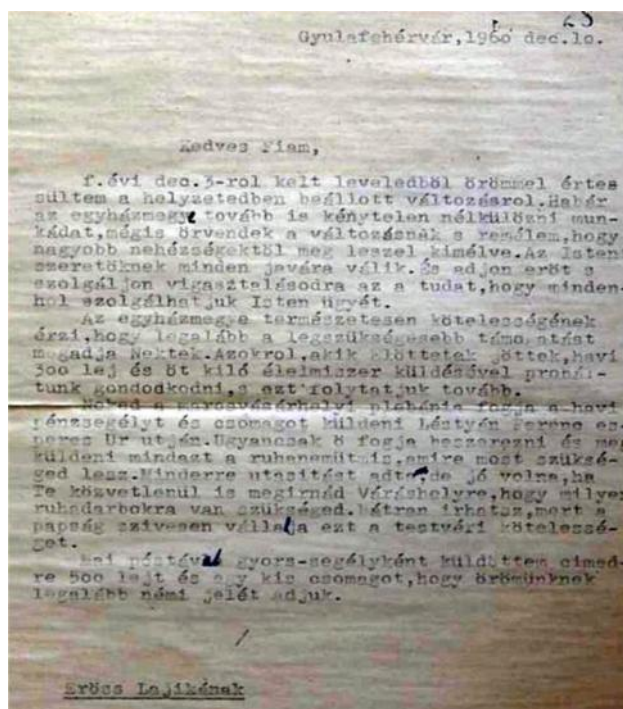 25
Gyulafehérvár,1960 dec.10.
Kedves Fiam,
f.évi dec.3-rol kelt leveledből örömmel értes
sültem a helyzetedben beállott változásrol.Habár
az egyházmegye tovább is kénytelen nélkülözni mun-
kádat,mégis örvendek a változásnak s remélem,hogy
nagyobb nehézségektöl meg leszel kimélve.Az Isten
szeretöknek minden javára válik.És adjon eröt s
szolgáljon vigasztalásodra az a tudat,hogy minden-
hol szolgálhatjuk Isten ügyét.
Az egyházmegye természetesen kötelességének
érzi,hogy legalább a legszükségesebb támogatást
megadja Nektek.Azokrol,akik Elöttetek jöttek,havi
300 lej és öt kiló élelmiszer küldésével probál-
tunk gondodkodni,s ezt folytatjuk tovább.
Neked a marosvásárhelyi plébánia fogja a havi
pénzsegélyt és csomagot küldeni Léstyán Ferenc es-
peres Ur utján.Ugyancsak ö fogja beszerezni és meg
küldeni mindazt a ruhanemüt is,amire most szüksé-
ged lesz.Minderre utasitást adtam,de jó volna,ha
Te közvetlenül is megirnád Vásárhelyre,hogy milyen
ruhadarbokra van szükséged.Bátran irhatsz,mert a
papság szivesen vállalja ezt a testvéri kötelessé-
get.
Mai póstával gyors-segélyként küldöttem cimed-
re 500 lejt és egy kis csomagot,hogy örömünknek
legalább némi jelét adjuk.
Eröss Lajikának